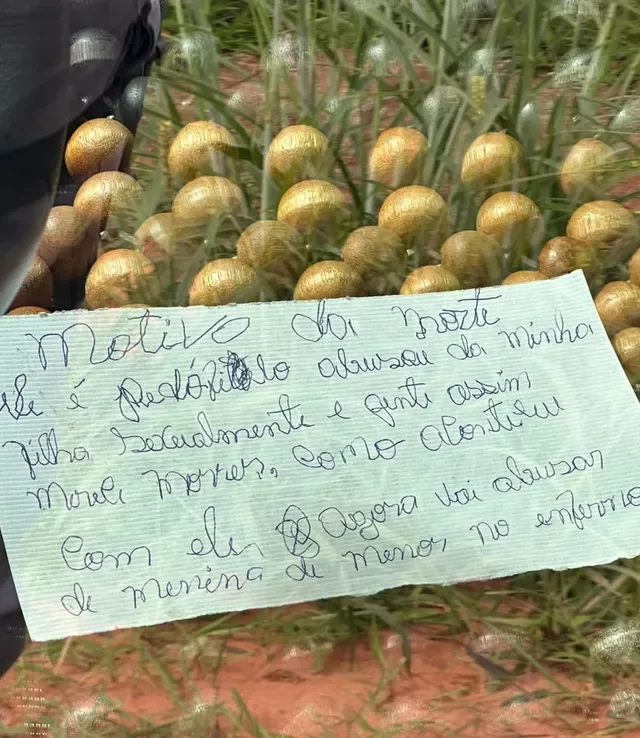 Motivo da morte
ele é pedófilo abusou da minha
filha sexualmente e gente assim
mereci morrer, como aconteceu
com ele Agora vai abusar
de menina de menor no enferno